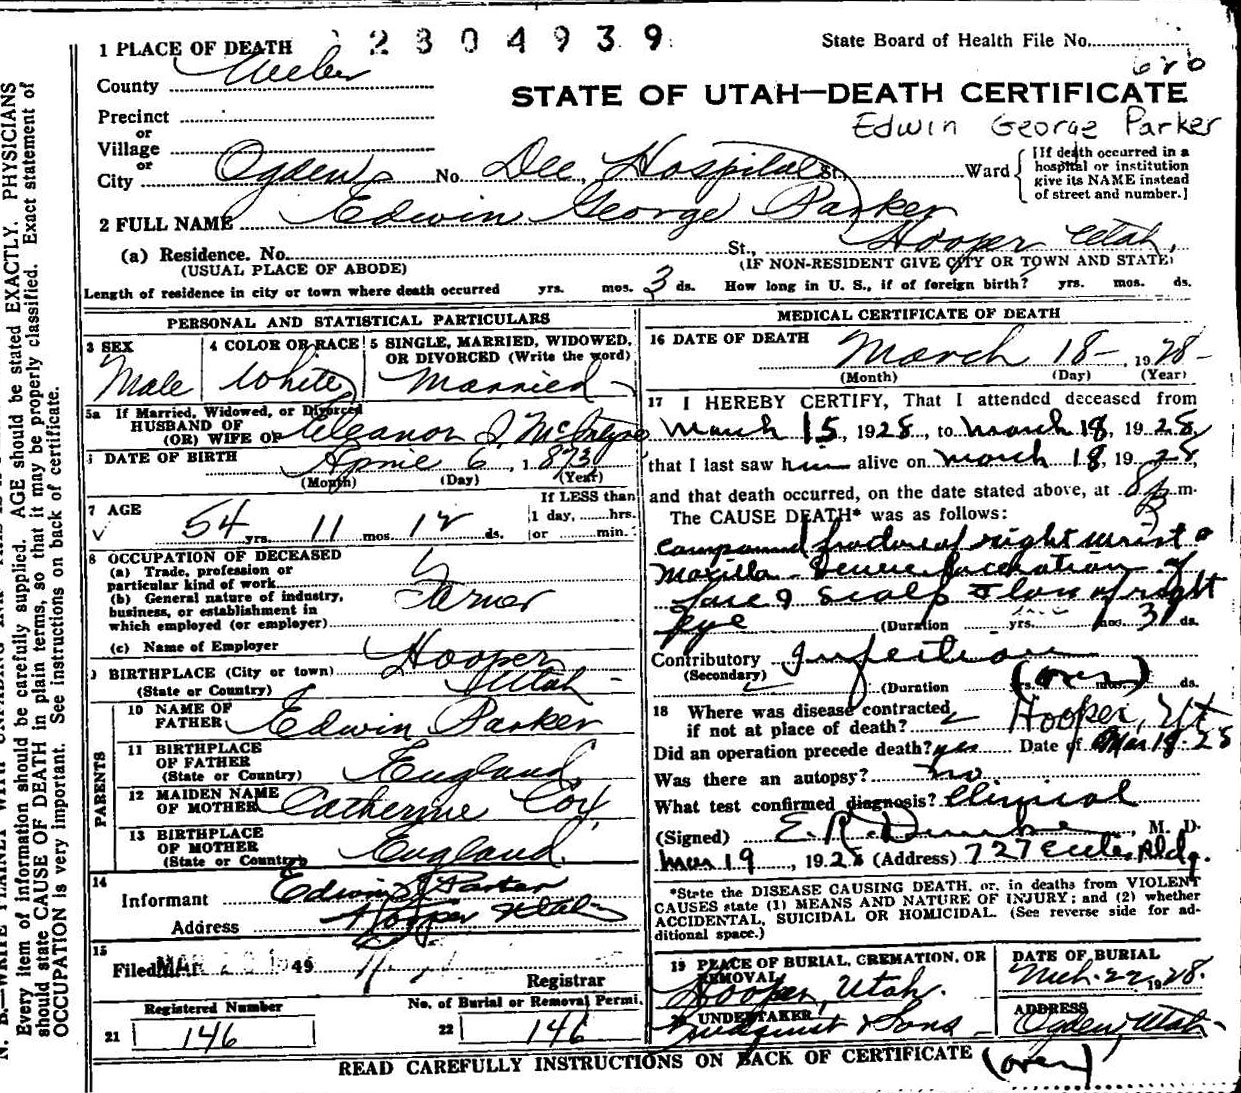 2304939
State Board of Health File No.
1 PLACE OF DEATH
County Weber
STATE OF UTAH—DEATH CERTIFICATE
Edwin George Parker
Precinct
or
Village
or
City Ogden No. Dee Hospital St. Ward
[If death occurred in a
hospital or institution
give its NAME instead
of street and number.]
2 FULL NAME Edwin George Parker
(a) Residence. No. St., Hooper Utah,
(USUAL PLACE OF ABODE) (IF NON-RESIDENT GIVE CITY OR TOWN AND STATE)
Length of residence in city or town where death occurred yrs. mos. 3 ds. How long in U. S., if of foreign birth? yrs. mos. ds.
PERSONAL AND STATISTICAL PARTICULARS
3 SEX
Male
4 COLOR OR RACE
White
5 SINGLE, MARRIED, WIDOWED,
OR DIVORCED (Write the word)
Married
5a If Married, Widowed, or Divorced
HUSBAND OF
(OR) WIFE OF Eleanor
DATE OF BIRTH April 6, 1873
(Month) (Day) (Year)
7 AGE
54 yrs. 11 mos. 12 ds.
If LESS than
1 day, hrs.
or min.
8 OCCUPATION OF DECEASED
(a) Trade, profession or
particular kind of work
(b) General nature of industry,
business, or establishment in
which employed (or employer)
Farmer
(c) Name of Employer
BIRTHPLACE (City or town) Hooper
(State or Country) Utah
PARENTS
10 NAME OF
FATHER Edwin Parker
11 BIRTHPLACE
OF FATHER
(State or Country) England
12 MAIDEN NAME
OF MOTHER Catherine Cox
13 BIRTHPLACE
OF MOTHER
(State or Country) England
14
Informant Edwin J Parker
Address Hooper Utah
15
Filed MAR 1949
Registrar
Registered Number
21 146
No. of Burial or Removal Permi.
22 146
MEDICAL CERTIFICATE OF DEATH
16 DATE OF DEATH
March 18 - 1928 -
(Month) (Day) (Year)
17 I HEREBY CERTIFY, That I attended deceased from
March 15, 1928, to March 18, 1928
that I last saw him alive on March 18, 1928,
and that death occurred, on the date stated above, at 8 p m.
The CAUSE DEATH* was as follows:
Compound fracture of right wrist &
Maxilla - Severe laceration of
face & scalp & loss of right
eye (Duration yrs. mos. 3 ds.
Contributory Infection
(Secondary) (Duration yrs. mos. ds.
(over)
18 Where was disease contracted
if not at place of death? Hooper, Ut
Did an operation precede death? yes Date of Mar 18-28
Was there an autopsy? no.
What test confirmed diagnosis? Clinical
(Signed) E. R. , M. D.
Mar 19, 1928 (Address) 727 Eccles Bldg.
*State the DISEASE CAUSING DEATH, or, in deaths from VIOLENT
CAUSES state (1) MEANS AND NATURE OF INJURY; and (2) whether
ACCIDENTAL, SUICIDAL OR HOMICIDAL. (See reverse side for ad-
ditional space.)
19 PLACE OF BURIAL, CREMATION, OR
REMOVAL
Hooper, Utah.
DATE OF BURIAL
Mch-22, 1928.
20 UNDERTAKER
Lindquist & Sons
ADDRESS
Ogden, Utah
READ CAREFULLY INSTRUCTIONS ON BACK OF CERTIFICATE (over)
Every item of information should be carefully supplied. AGE should be stated EXACTLY. PHYSICIANS
should state CAUSE OF DEATH in plain terms, so that it may be properly classified. Exact statement of
OCCUPATION is very important. See instructions on back of certificate.